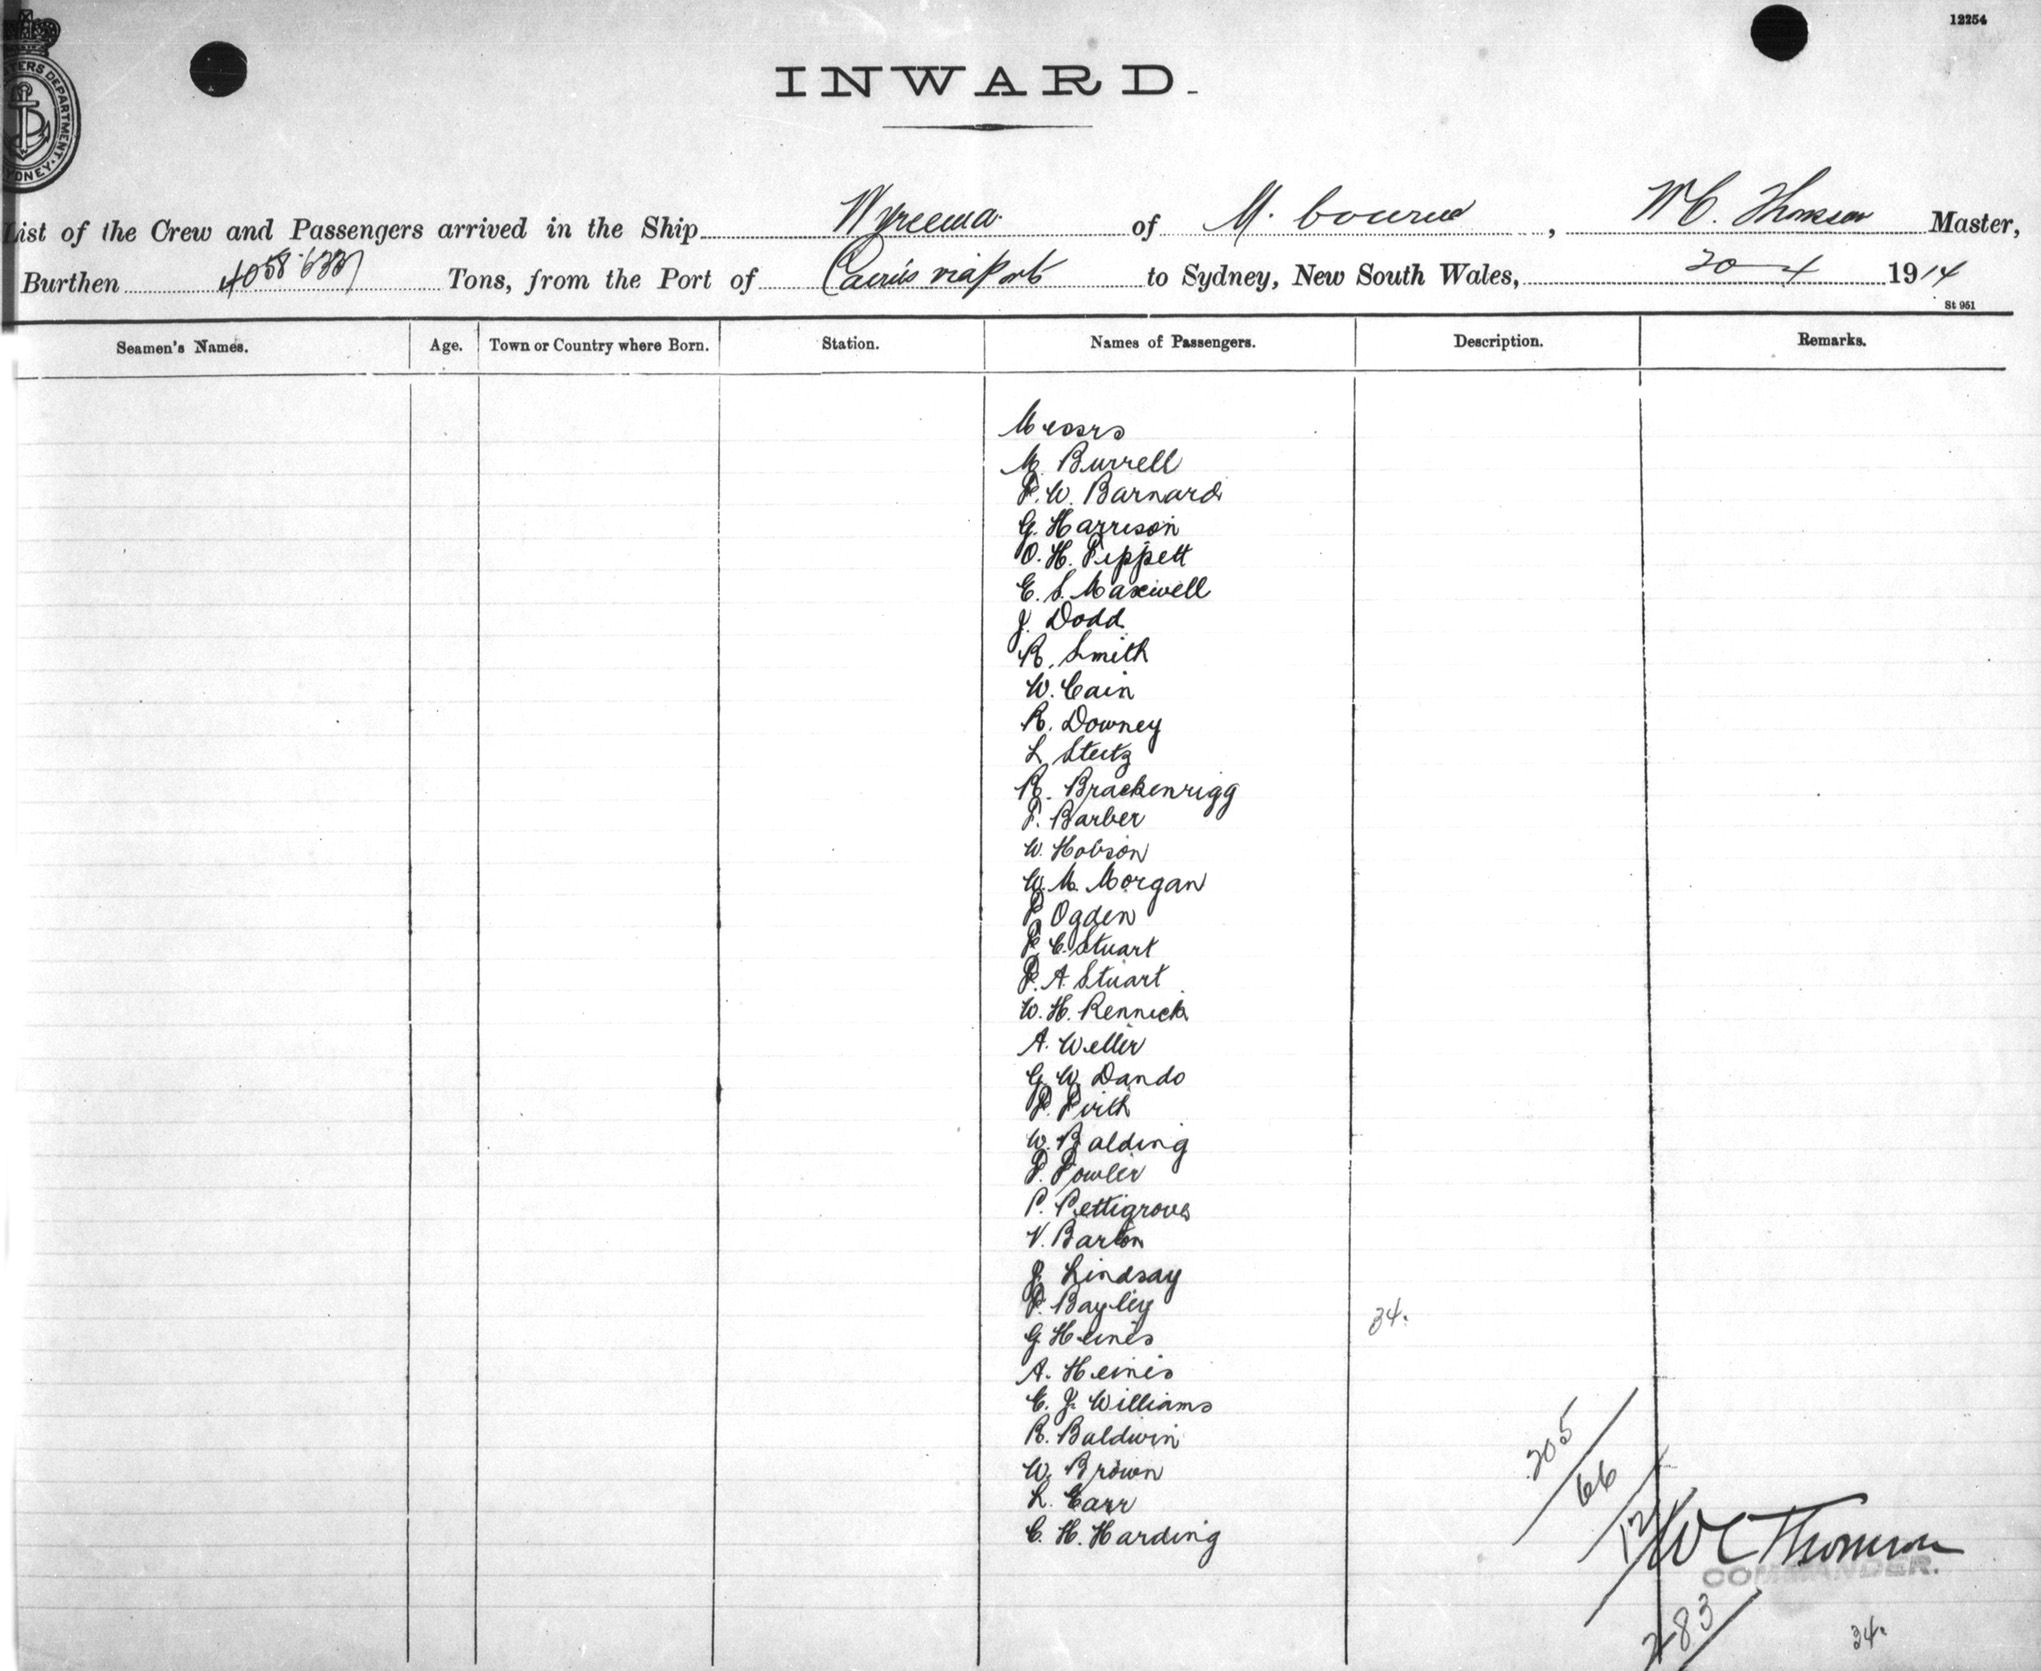 12254
INWARD.
List of the Crew and Passengers arrived in the Ship Wyreema. of M. bourne, W C. Thomson Master,
Burthen Tons, from the Port of Cairns via Ports to Sydney, New South Wales, 20–4 1914
St 951
Seamen's Names. Age. Town or Country where Born. Station. Names of Passengers. Description. Remarks.
Messrs
M. Burrell
F. W. Barnard
G. Harrison
O. H. Tippett
E. S. Maxwell
J. Dodd
R. Smith
W. Cain
R. Downey
L Steitz
R. Brackenrigg
F. Barber
W. Hobson
W. M. Morgan
F Ogden
F C. Stuart
F. A. Stuart
W. H. Rennick
A. Weller
G. W. Dando
F. Firth
W. Balding
F. Fowler
P. Pettigrove
V. Barton
J. Lindsay
F. Bayley
34.
G Heines
A. Heines
E. J. Williams
R. Baldwin
W. Brown
L. Carr
C. H. Harding
205
66
12
283
W C Thomson
COMMANDER.
34.